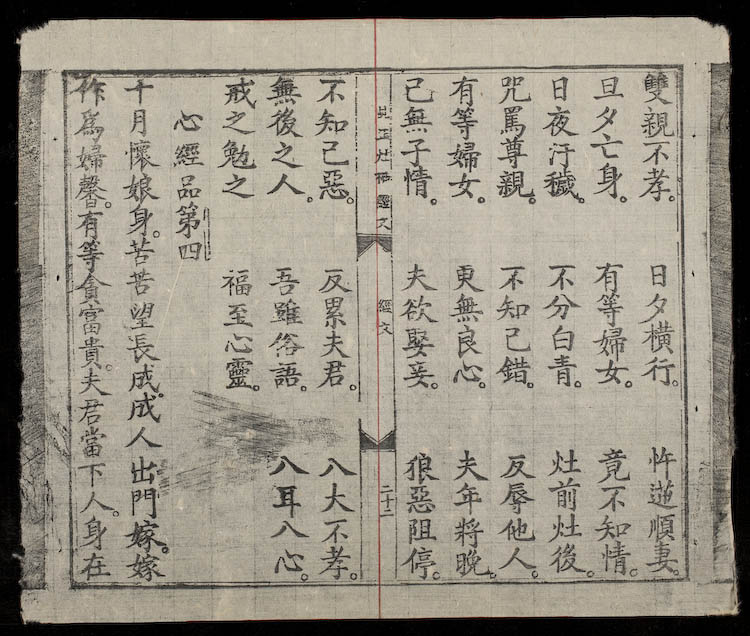 雙親不孝。日夕橫行。忤逆順妻。
旦夕亡身。有等婦女。竟不知情。
日夜汙穢。不分白青。灶前灶後。
咒罵尊親。不知己錯。反辱他人。
有等婦女。更無良心。夫年將晚。
己無子情。夫欲娶妾。狼惡阻停。
經文
經文
二十二
不知己惡。反累夫君。八大不孝。
無後之人。吾雖俗語。八耳八心。
戒之勉之 福至心靈。
心經品第四
十月懷娘身。苦苦望長成。成人出門嫁。嫁
作爲婦馨。有等貪富貴。夫君當下人。身在